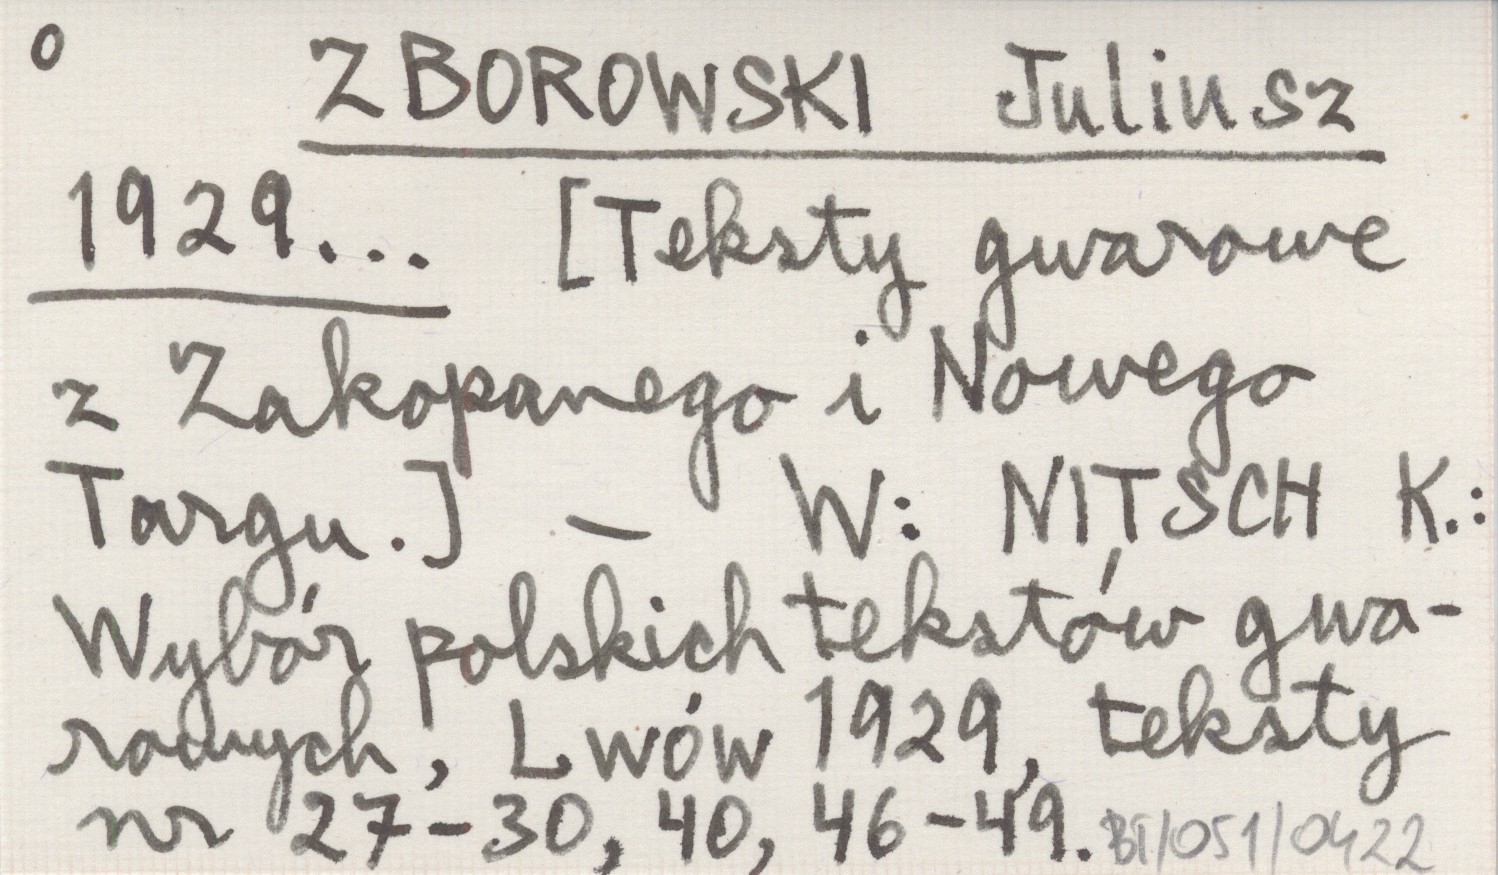 o ZBOROWSKI Juliusz
1929... [Teksty gwarowe
z Zakopanego i Nowego
Targu.] — W: NITSCH K.:
Wybór polskich tekstów gwa-
rowych, Lwów 1929, teksty
nr 27-30, 40, 46-49. BT/051/0422